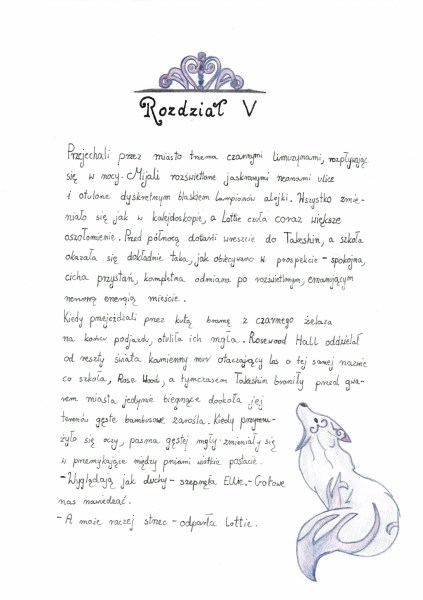 Rozdział V
Przejechali przez miasto trzema czarnymi limuzynami, rozpływając
się w nocy. Mijali rozświetlone jaskrawymi neonami ulice
i otulone dyskretnym blaskiem lampionów alejki. Wszystko zmie-
niało się jak w kalejdoskopie, a Lottie czuła coraz większe
oszołomienie. Przed północą dotarli wreszcie do Takeshin, a szkoła
okazała się dokładnie taka, jak obiecywano w prospekcie - spokojna,
cicha przystań, kompletna odmiana po rozświetlonym, emanującym
nerwową energią mieście.
Kiedy przejeżdżali przez kutą bramę z czarnego żelaza
na końcu podjazdu, otuliła ich mgła. Rosewood Hall oddzielał
od reszty świata kamienny mur otaczający las o tej samej nazwie
co szkoła, Rose Wood, a tymczasem Takeshin broniły przed gwa-
rem miasta jedynie biegnące dookoła jej
terenów gęste bambusowe zarośla. Kiedy przymru-
żyło się oczy, pasma gęstej mgły zmieniały się
w przemykające między pniami wiotkie postacie.
- Wyglądają jak duchy - szepnęła Ellie. - Gotowe
nas nawiedzać.
- A może raczej strzec - odparła Lottie.